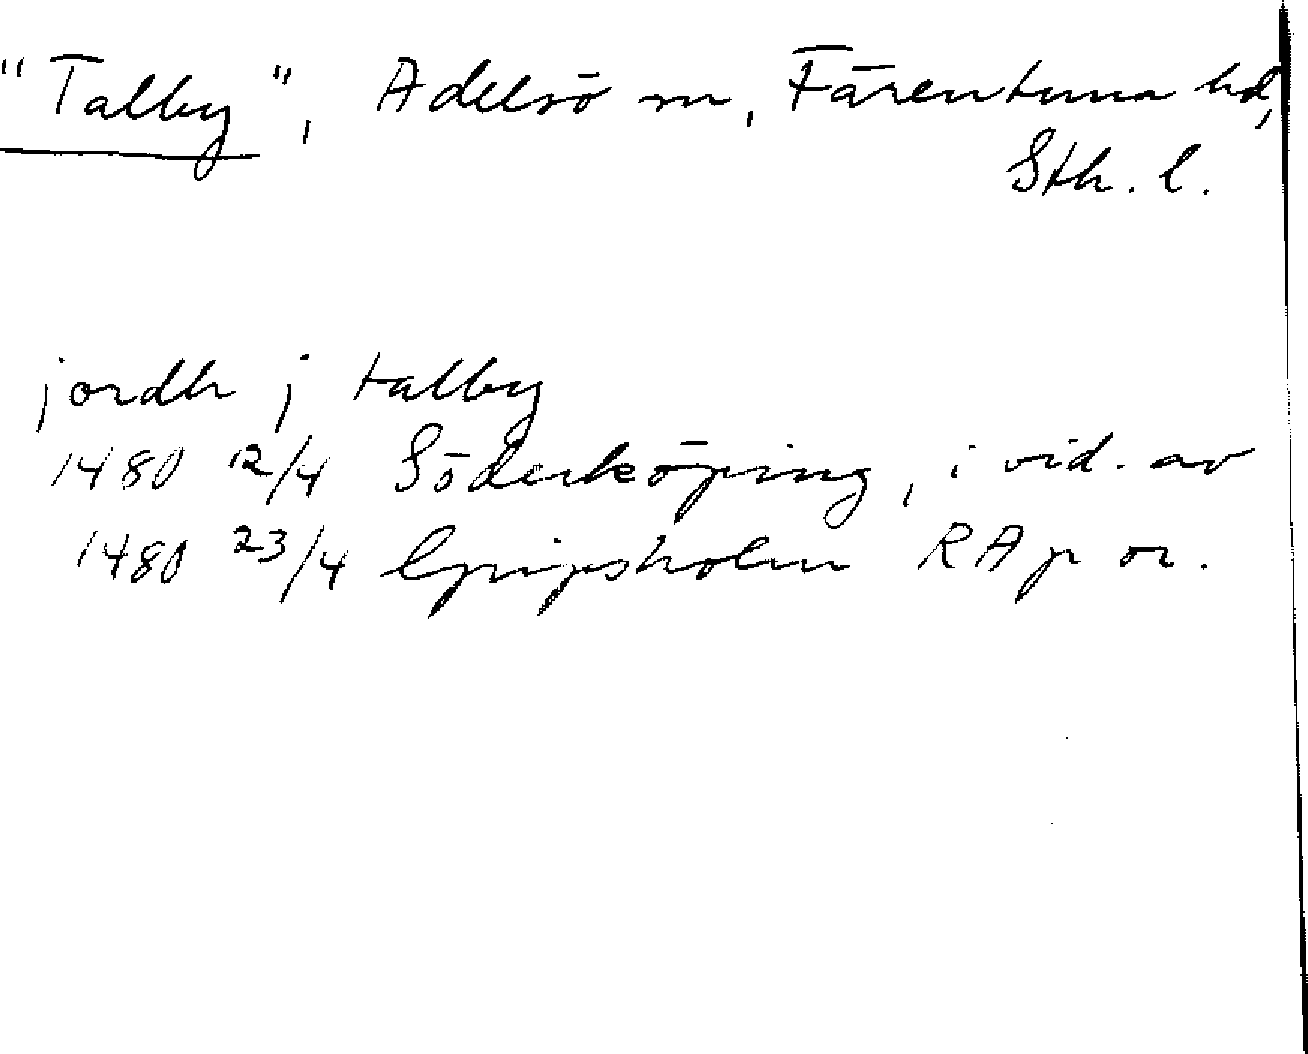 "Talby", Adelsö sn, Färentuna hd,
Sth. l.
jordh j talby
1480 12/4 Söderköping, i vid. av
1480 23/4 Gripsholm RA p or.